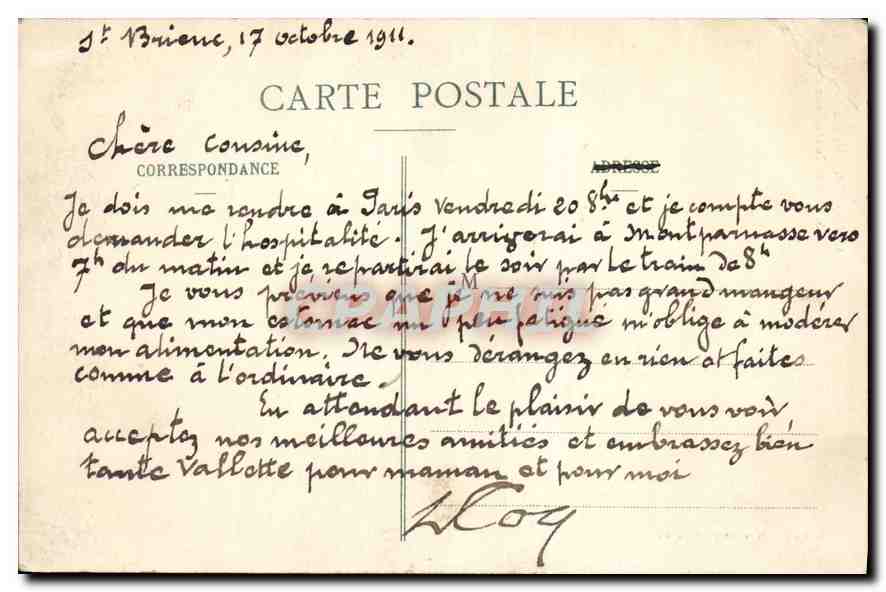 St Brieuc, 17 octobre 1911.
CARTE POSTALE
Chère Cousine,
CORRESPONDANCE
ADRESSE
Je dois me rendre à Paris Vendredi 20 8bre et je compte vous
demander l'hospitalité. J'arriverai à Montparnasse vers
7h du matin et je repartirai le soir par le train de 8h
Je vous préviens que je ne suis pas grand mangeur
et que mon estomac un peu fatigué m'oblige à modérer
mon alimentation. Ne vous dérangez en rien et faites
comme à l'ordinaire.
En attendant le plaisir de vous voir
acceptez nos meilleures amitiés et embrassez bien
tante Vallette pour maman et pour moi